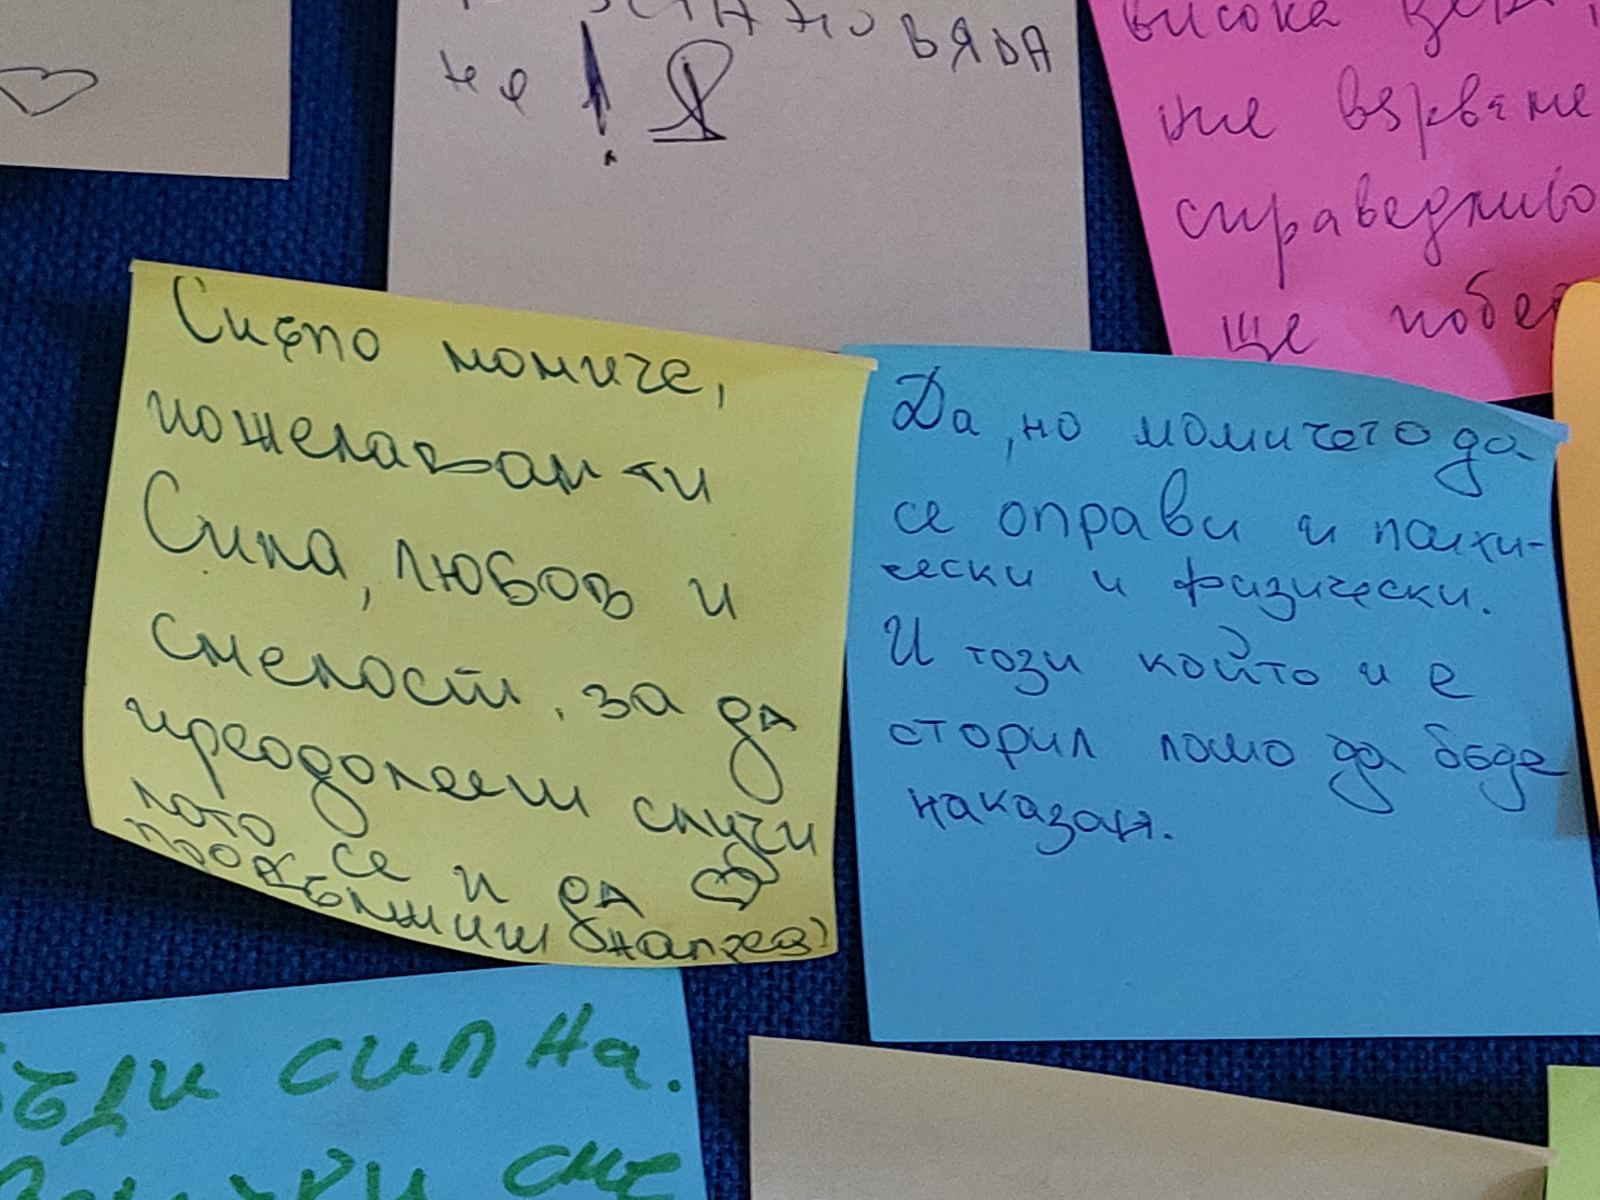 не!
висока
ние вярваме
справедливо
ще побе
Силно момиче,
пожелавам ти
Сила, любов и
смелост, за да
преодолееш случи
лото се и да
продължиш напред!
Да, но момичето да
се оправи и психи-
чески и физически.
И този който и е
сторил лошо да бъде
наказан.
ъди силна.
сме